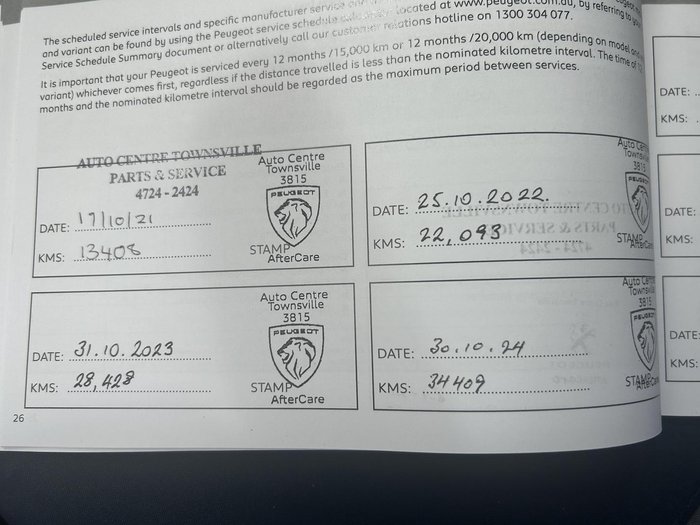 The scheduled service intervals and specific manufacturer service
and variant can be found by using the Peugeot service schedule located at www.peugeot.com.au, by referring to
Service Schedule Summary document or alternatively call our customer relations hotline on 1300 304 077.
It is important that your Peugeot is serviced every 12 months /15,000 km or 12 months /20,000 km (depending on model and
variant) whichever comes first, regardless if the distance travelled is less than the nominated kilometre interval. The time of 12
months and the nominated kilometre interval should be regarded as the maximum period between services.
AUTO CENTRE TOWNSVILLE
PARTS & SERVICE
4724-2424
Auto Centre
Townsville
3815
PEUGEOT
DATE: 17/10/21
KMS: 13408
STAMP
AfterCare
Auto Cen
Townsvi
3815
PEUGEOT
DATE: 25.10.2022.
KMS: 22,093
STAMP
AfterCar
Auto Centre
Townsville
3815
PEUGEOT
DATE: 31.10.2023
KMS: 28,428
STAMP
AfterCare
Auto Cen
Townsvill
3815
PEUGEOT
DATE: 30.10.24
KMS: 34409
STAMP
AfterCare
DATE:
KMS:
DATE:
KMS:
DATE:
KMS:
26